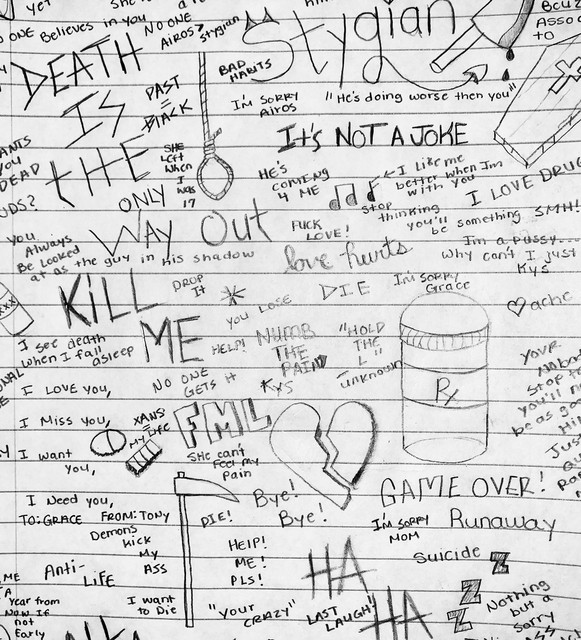 yet
NO ONE Believes in you
NO ONE
AIROS?
Stygian
Stygian
Bcuz
ASSO
TO
DEATH
PAST
=
BLACK
BAD
HABITS
I'm SORRY
AIROS
"He's doing worse then you"
IS
IT'S NOT A JOKE
ANTS
YOU
DEAD
THE
SHE
Left
When
I
was
17
HE'S
COMING
4 ME
I like me
better when I'm
with you
I LOVE DRUG
UDS?
ONLY
Stop
thinking
you'll
be something
SMH!
WAY OUT
FUCK
LOVE!
you
Always
Be Looked
at as the guy in his shadow
love hurts
I'm a pussy....
Why can't I just
Kys
KILL
DROP
IT
DIE
I'm SORRY
Grace
XXX
YOU LOSE
ache
I see death
when I fall
asleep
ME
HELP!
NUMB
THE
PAIN
"HOLD
THE
L"
unknown
YOUR
NO ONE
GETS it
Kys
Rx
I LOVE YOU,
XANS
My Life
FML
I Miss you,
I want
you,
SHE can't
feel my
pain
GAME OVER!
I Need you,
TO: GRACE FROM: TONY
Bye!
Bye!
DIE!
I'm SORRY
MOM
Runaway
Demons
Kick
My
Ass
HELP!
ME!
PLS!
Suicide
Z
Z
Z
Anti-
LiFE
HA
HA
ME
A
year from
Now If
not
Early
I want
to Die
"your
CRAZY"
LAST LAUGH!
Nothing
but a
Sorry